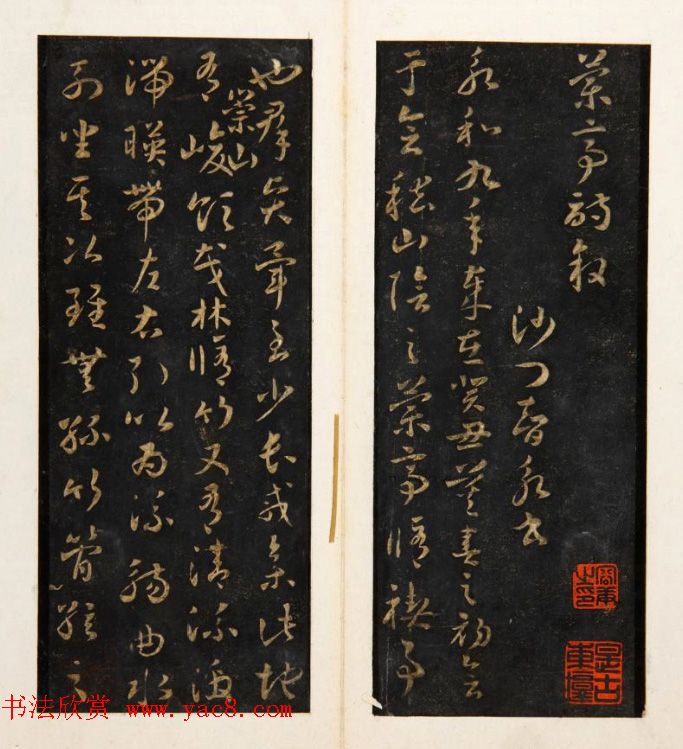 蘭亭詩敘
沙門智永書
永和九年歲在癸丑暮春之初會
于會稽山陰之蘭亭脩禊事
也群賢畢至少長咸集此地
有崇山峻領茂林脩竹又有清流激
湍暎帶左右引以為流觴曲水
列坐其次雖無絲竹管絃之
书法欣赏 www.yac8.com